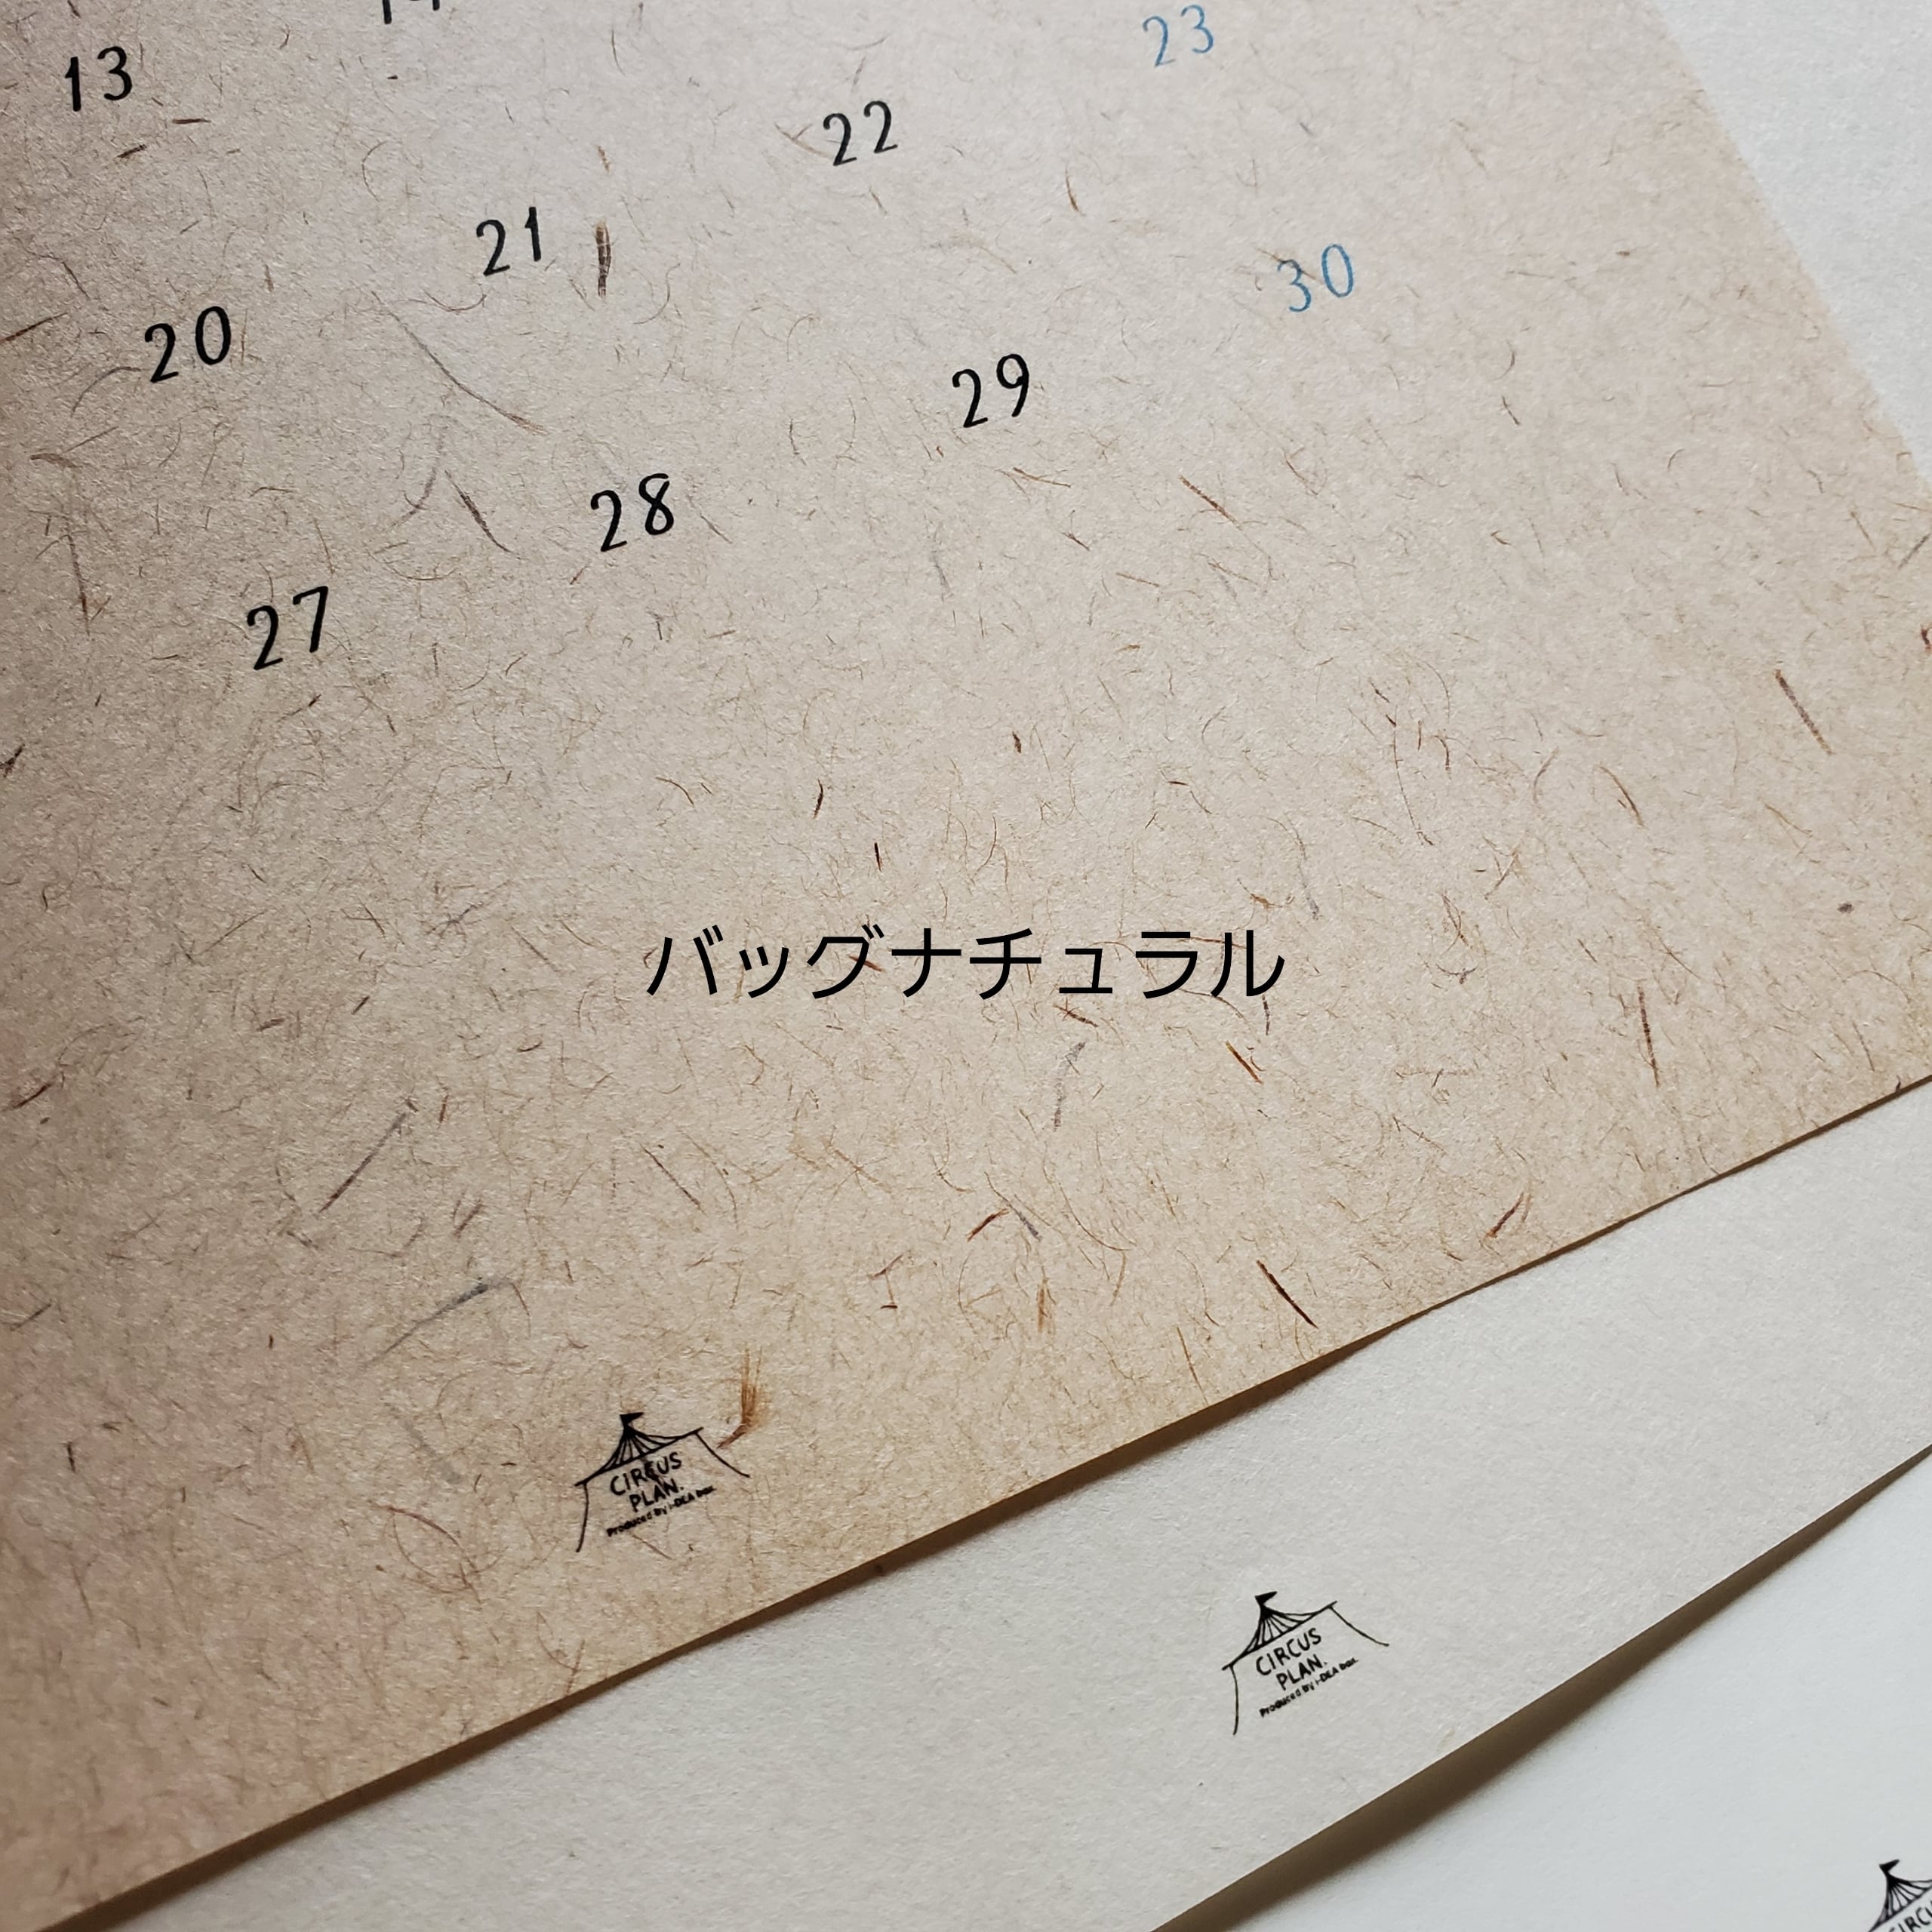 23
13
22
21
30
20
29
28
27
バッグナチュラル
CIRCUS
PLAN.
Produced by i-DEA box.
CIRCUS
PLAN.
Produced by i-DEA box.